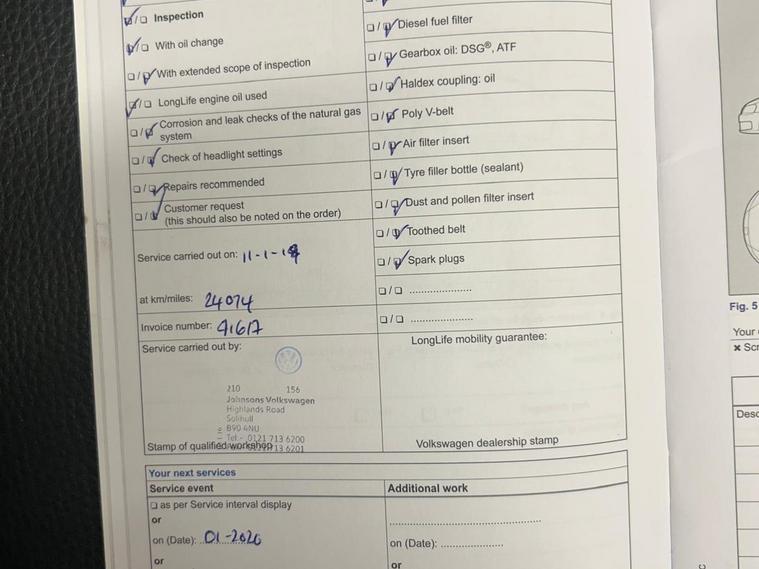 ❏/❏ Inspection
❏/❏ With oil change
❏/❏ With extended scope of inspection
❏/❏ LongLife engine oil used
❏/❏ Corrosion and leak checks of the natural gas
system
❏/❏ Check of headlight settings
❏/❏ Repairs recommended
❏/❏ Customer request
(this should also be noted on the order)
Service carried out on: 11-1-
at km/miles: 24074
Invoice number: 91617
Service carried out by:
210 156
Johnsons Volkswagen
Highlands Road
Solihull
B90 4NU
Tel:- 0121 713 6200
13 6201
Stamp of qualified workshop
❏/❏ Diesel fuel filter
❏/❏ Gearbox oil: DSG®, ATF
❏/❏ Haldex coupling: oil
❏/❏ Poly V-belt
❏/❏ Air filter insert
❏/❏ Tyre filler bottle (sealant)
❏/❏ Dust and pollen filter insert
❏/❏ Toothed belt
❏/❏ Spark plugs
❏/❏ .....................
❏/❏ .....................
LongLife mobility guarantee:
Volkswagen dealership stamp
Your next services
Service event
❏ as per Service interval display
or
on (Date): 01-2020
or
Additional work
..................................................
on (Date): .....................
or
Fig. 5
Your
✖ Scr
Desc